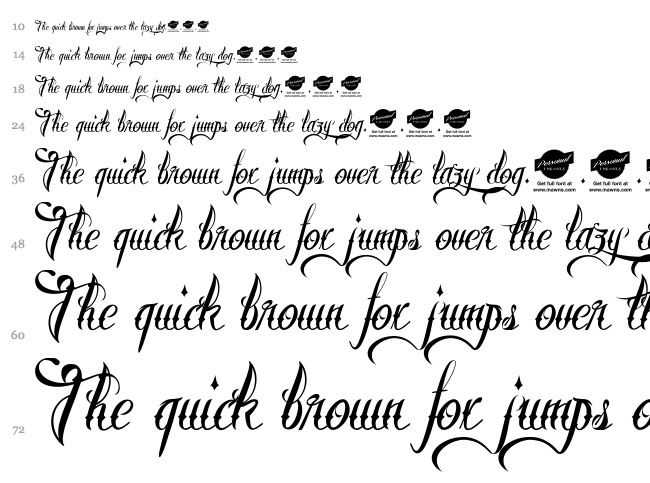 10 The quick brown fox jumps over the lazy dog.
14 The quick brown fox jumps over the lazy dog.
18 The quick brown fox jumps over the lazy dog.
24 The quick brown fox jumps over the lazy dog. Personal Get full font at www.mawns.com Personal Get full font at www.mawns.com Personal Get full font at www.mawns.com
36 The quick brown fox jumps over the lazy dog. Personal USE ONLY Get full font at www.mawns.com Personal USE ONLY Get full font at www.mawns.com
48 The quick brown fox jumps over the lazy d
60 The quick brown fox jumps over th
72 The quick brown fox jumps o